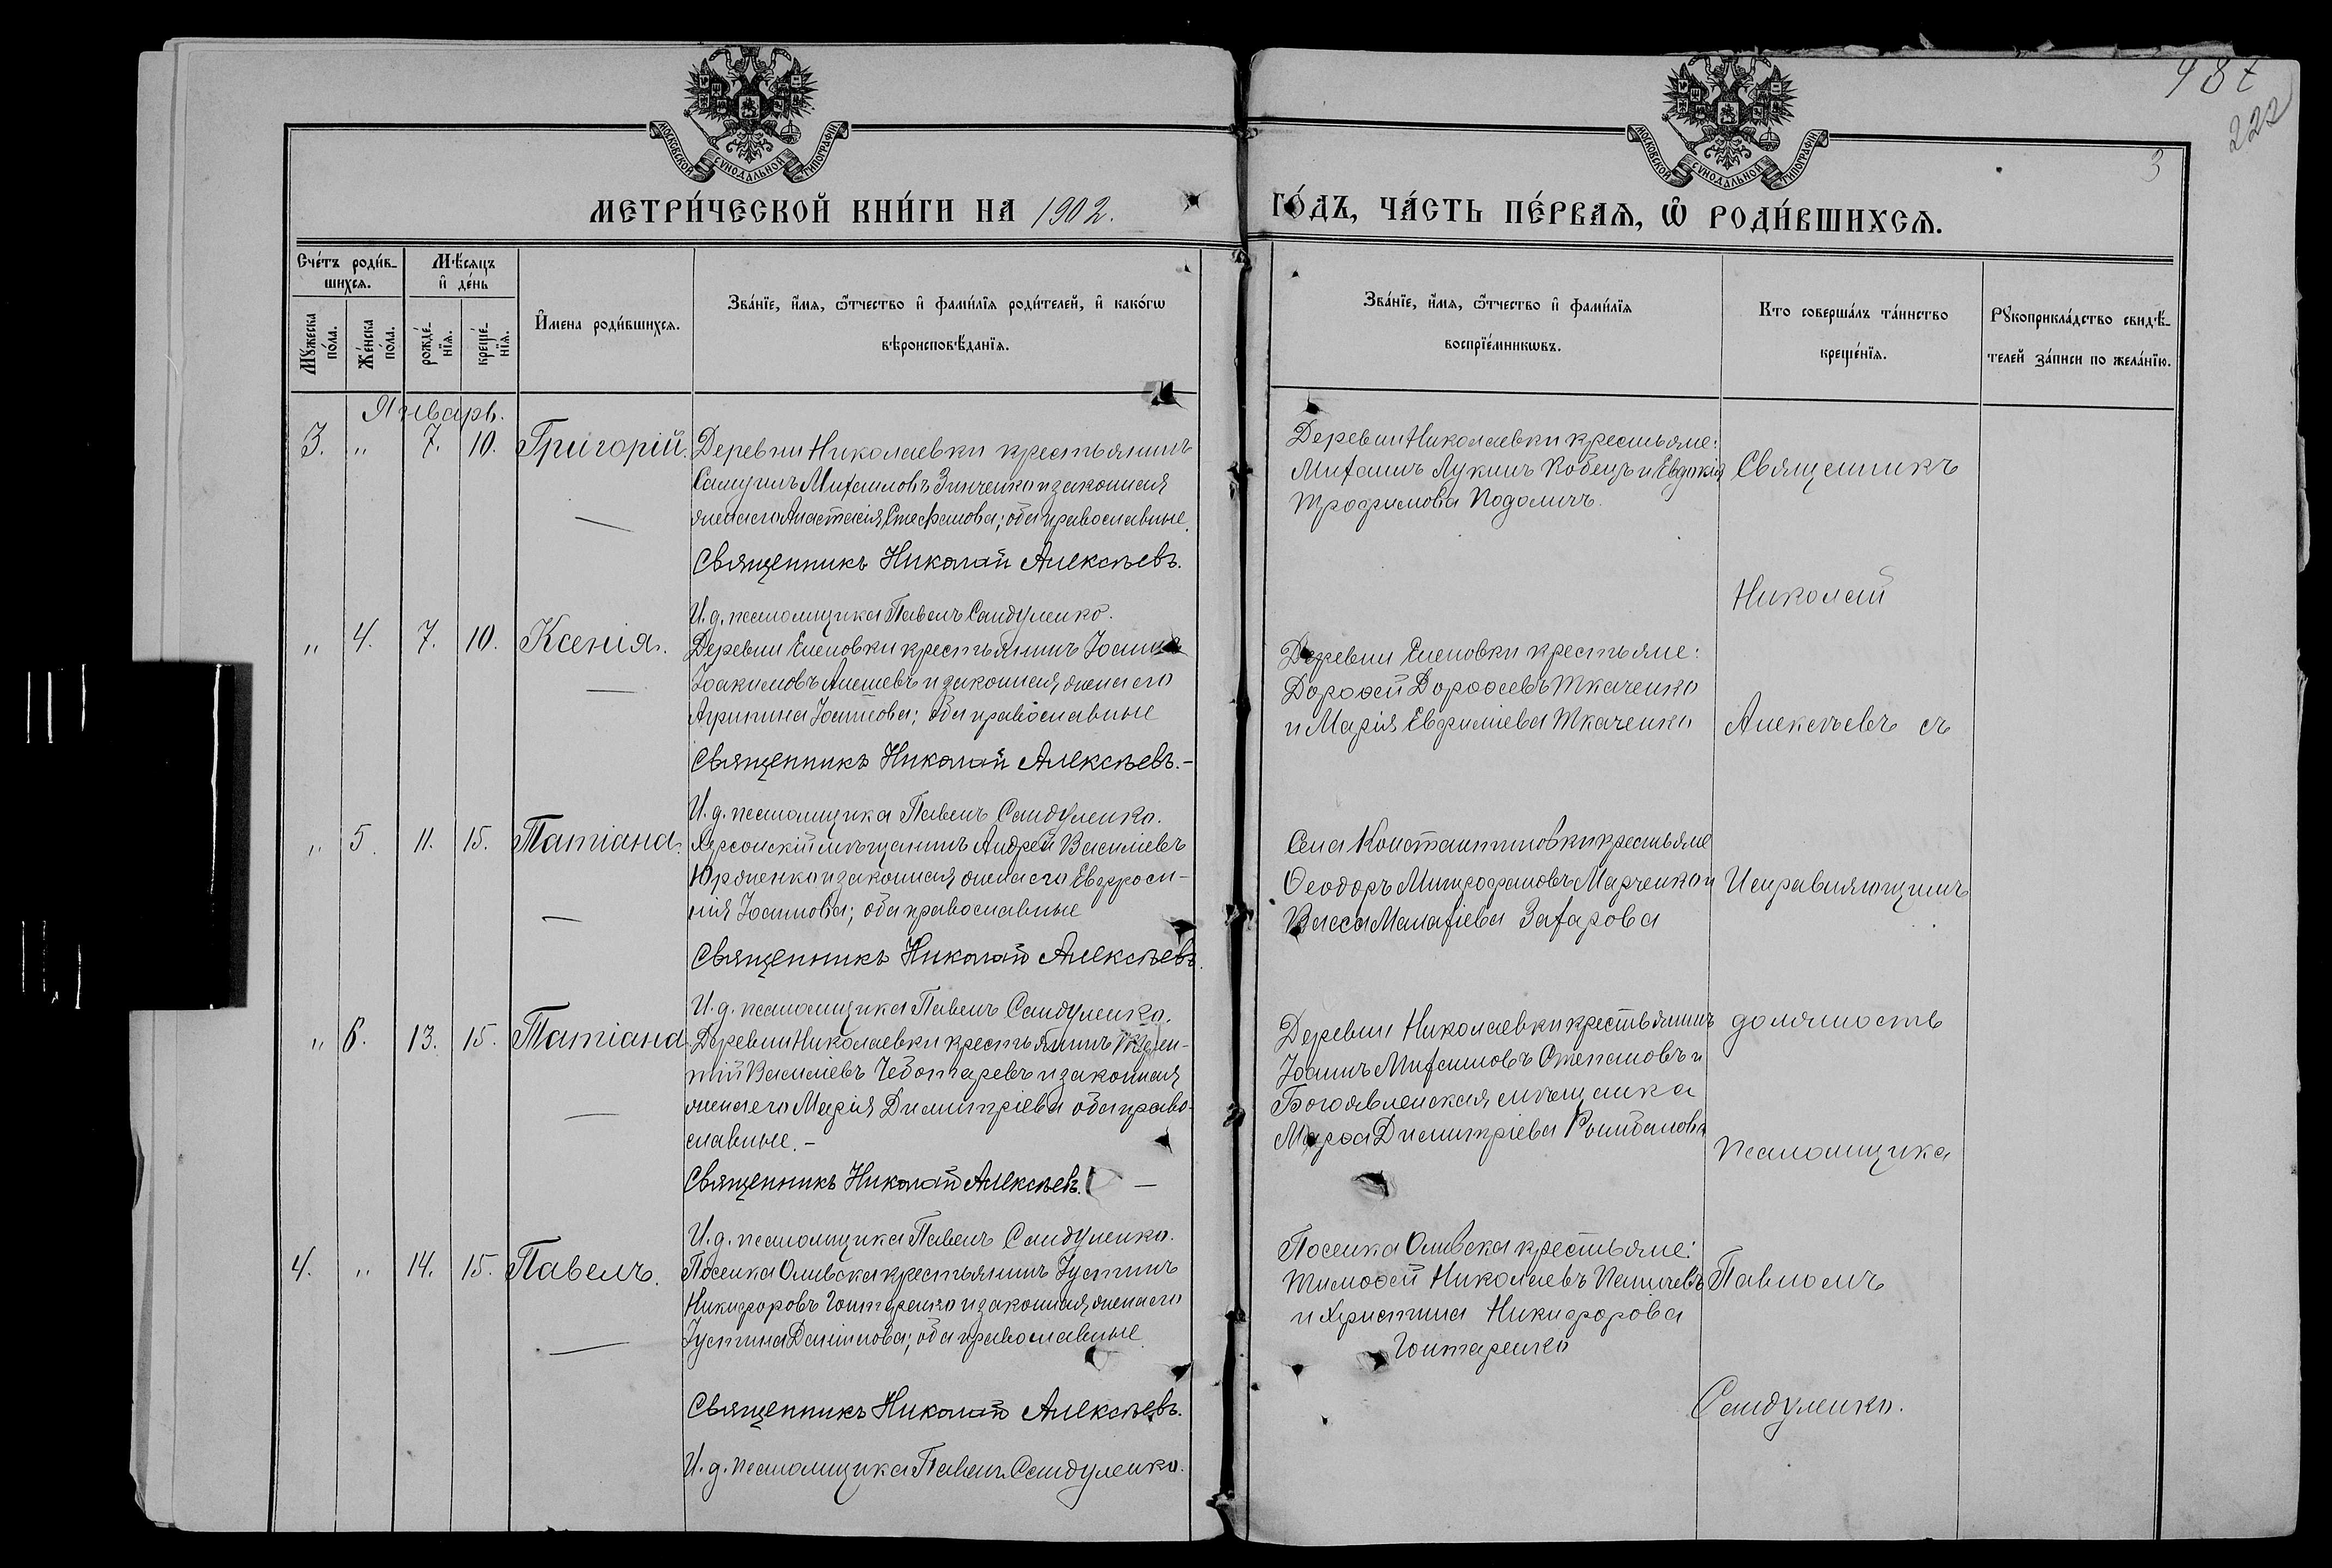 487
222
3
МОСКОВСКОЙ СѴНОДАЛЬНОЙ ТИПОГРАФІИ
МОСКОВСКОЙ СѴНОДАЛЬНОЙ ТИПОГРАФІИ
МЕТРИ́ЧЕСКОЙ КНИ́ГИ НА 1902.
ГО́ДЪ, ЧА́СТЬ ПЕ́РВАѦ, Ѿ РОДИ́ВШИХСѦ.
Сче́тъ роди́в-
шихсѧ.
Мѣ́сѧцъ
и҆ де́нь
Мꙋ́жеска
по́ла.
Же́нска
по́ла.
рожде́-
нїѧ.
креще́-
нїѧ.
И҆мена роди́вшихсѧ.
Зва́нїе, и҆́мѧ, ѻ҆́тчество и҆ фами́лїѧ роди́телей, и҆ како́гѡ
вѣроисповѣ́данїѧ.
Зва́нїе, и҆́мѧ, ѻ҆́тчество и҆ фами́лїѧ
воспрїе́мникѡвъ.
Кто соверша́лъ та́инство
креще́нїѧ.
Рꙋкоприкла́дство свидѣ́-
телей за́писи по жела́нїю.
Январь.
3. „ 7. 10. Григорій. Деревни Николаевки крестьянинъ
Самуилъ Михаиловъ Зинченко и законная
жена его Анастасія Стефанова; оба православные.
Священникъ Николай Алексѣевъ.
И. д. псаломщика Павелъ Сандуленко.
Деревни Николаевки крестьяне:
Михаилъ Лукинъ Кобецъ и Евдокія
Трофимова Подоличъ.
Священникъ
Николай
„ 4. 7. 10. Ксенія. Деревни Еленовки крестьянинъ Іоаннъ
Іоакимовъ и законная жена его
Агрипина Іоаннова; оба православные
Священникъ Николай Алексѣевъ.-
И. д. псаломщика Павелъ Сандуленко.
Деревни Еленовки крестьяне:
Дороѳей Дороѳеевъ Ткаченко
и Марія Евфиміева Ткаченко
Алексѣевъ съ
„ 5. 11. 15. Татіана. Херсонскій мѣщанинъ Андрей Василіевъ
Юрченко и законная жена его Евфроси-
нія Іоаннова; оба православные
Священникъ Николай Алексѣевъ.
И. д. псаломщика Павелъ Сандуленко.
Села Константиновки крестьяне
Ѳеодоръ Митрофановъ Марченко и
Васса Малахіева Захарова
Исправляющимъ
„ 6. 13. 15. Татіана Деревни Николаевки крестьянинъ
Василіевъ Чеботаревъ и законная
жена его Марія Димитріева оба право-
славные.-
Священникъ Николай Алексѣевъ.
И. д. псаломщика Павелъ Сандуленко.
Деревни Николаевки крестьянинъ
Іоаннъ Михаиловъ Степановъ и
Богоявленская мѣщанка
Марѳа Димитріева
должность
псаломщика
4. „ 14. 15. Павелъ. Поселка Ольвска крестьянинъ Іустинъ
Никифоровъ Гонтаренко и законная жена его
Іустина Даніилова; оба православные
Священникъ Николай Алексѣевъ.
И. д. псаломщика Павелъ Сандуленко.
Поселка Ольвска крестьяне:
Тимоѳей Николаевъ
и Христина Никифорова
Гонтаренко
Павломъ
Сандуленко.